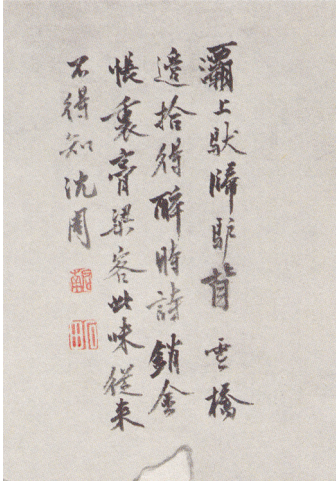 灞上馱歸驢背雪橋
邊拾得醉時詩銷金
帳裏膏梁客此味從来
不得知沈周